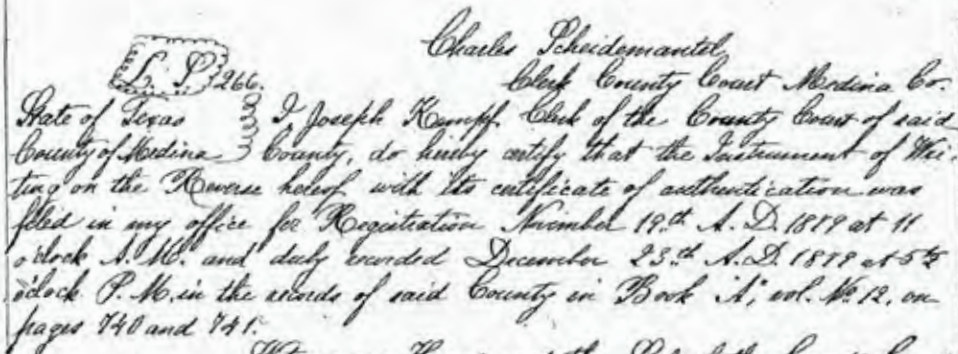 Charles Scheidemantel
L. S. 266. Clerk County Court Medina Co.
State of Texas I Joseph Kempf. Clerk of the County Court of said
County of Medina County, do hereby certify that the Instrument of Wri-
ting on the Reverse hereof with its certificate of authentication was
filed in my office for Registration November 19.th A.D. 1879 at 11
o'clock A.M. and duly recorded December 23.th A.D. 1879 at 5½
o'clock P.M. in the records of said County in Book "A", vol. No 12, on
pages 740 and 741.